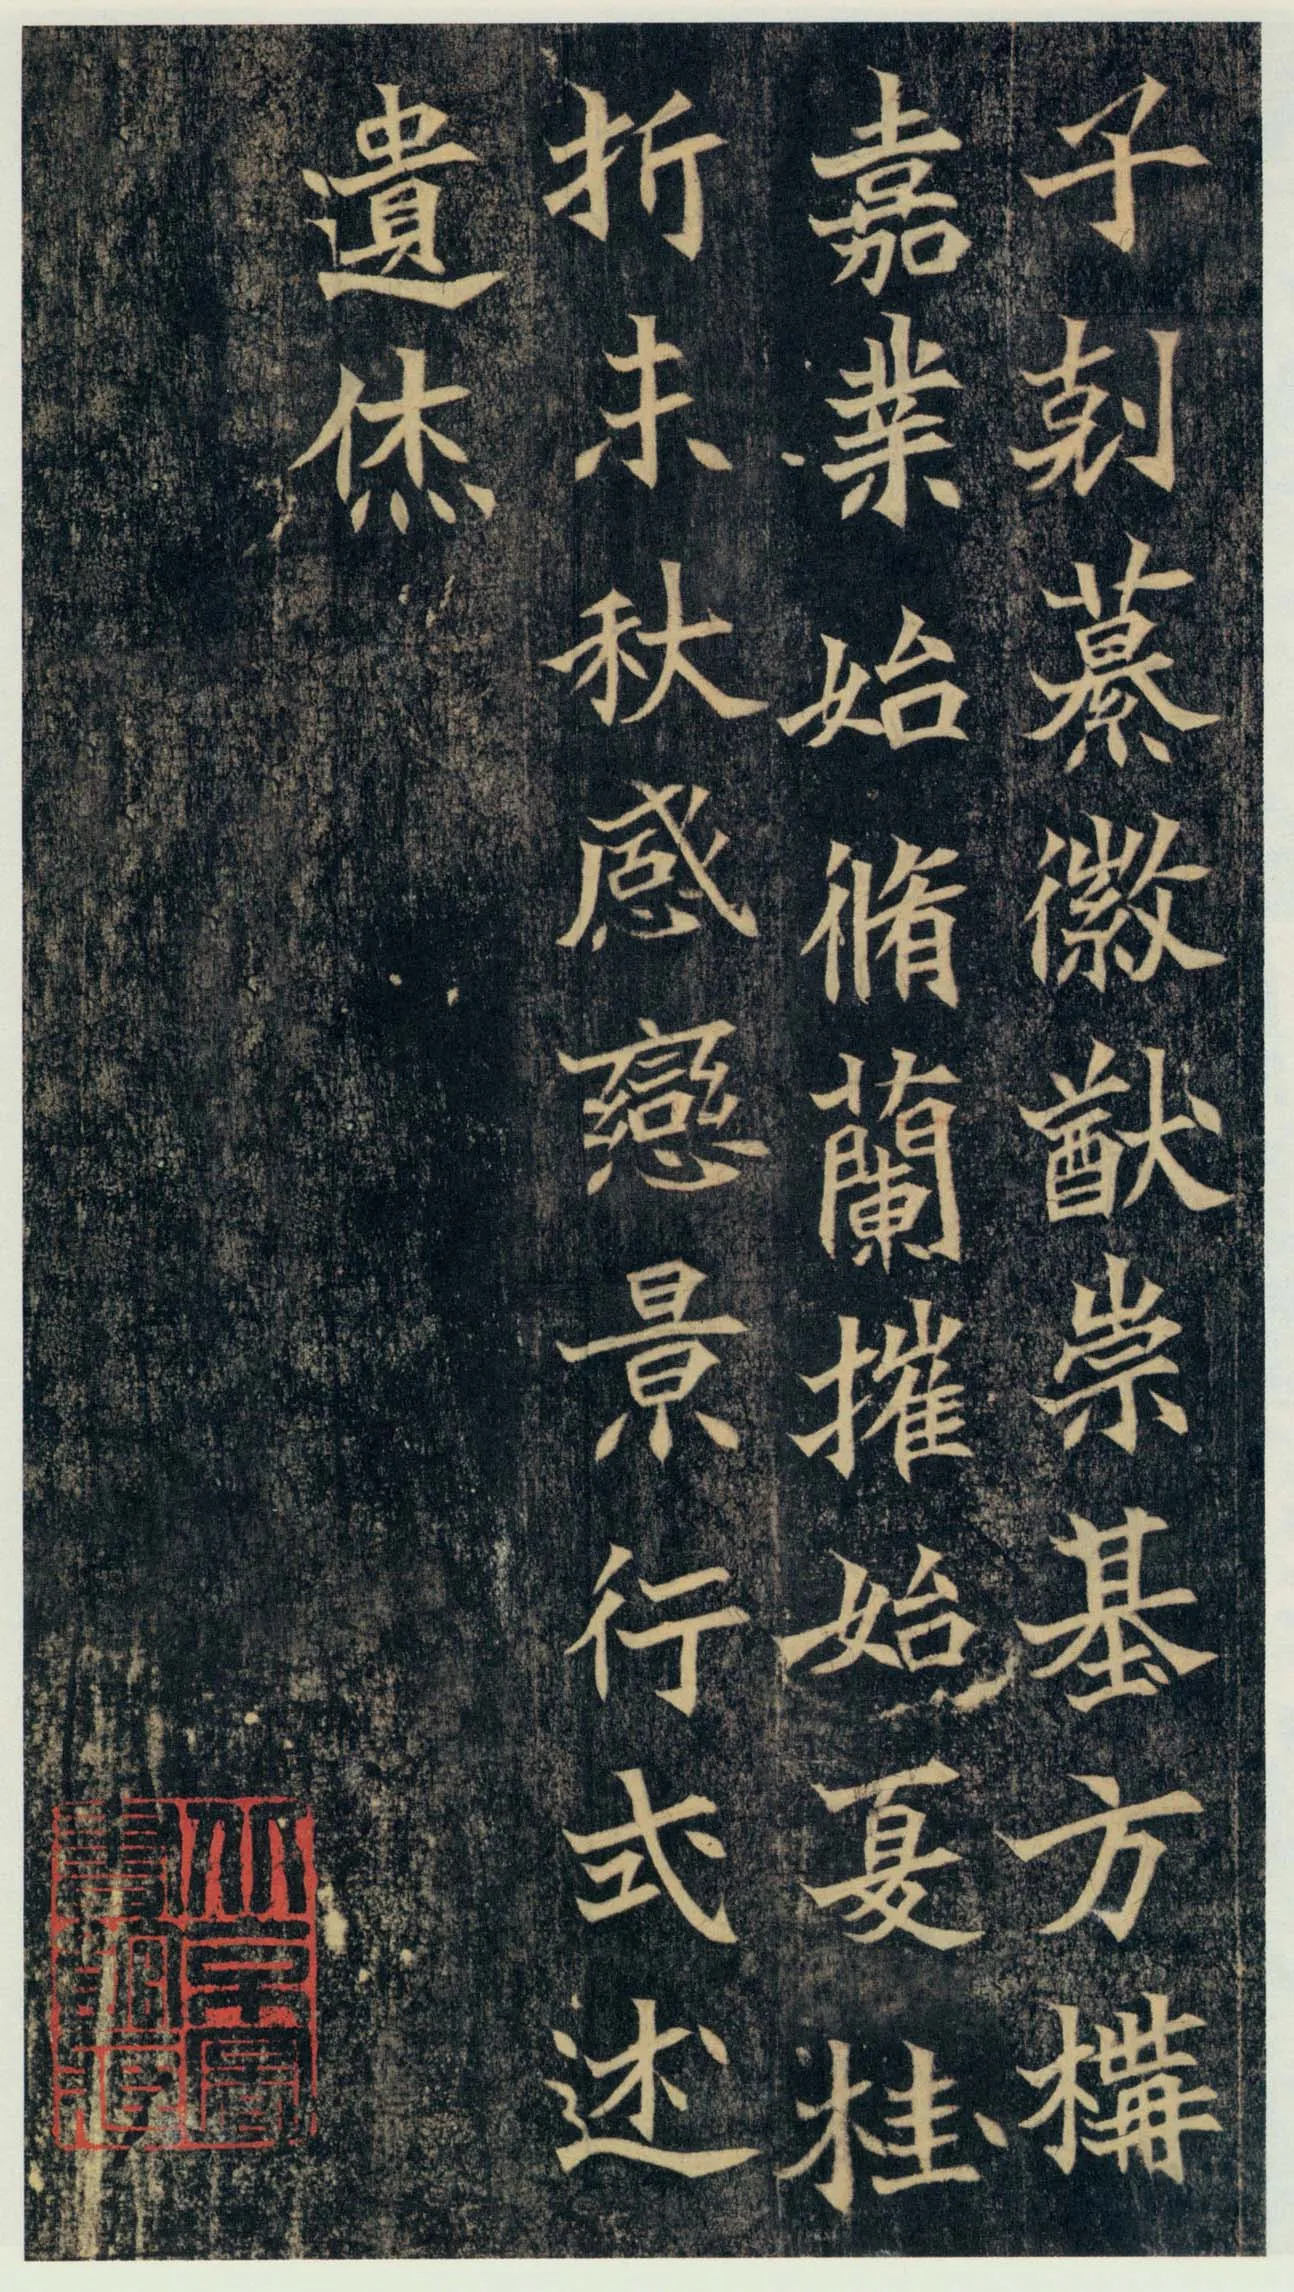 子剋纂徽猷崇基方構
嘉業始脩蘭摧始夏桂
折未秋感戀景行式述
遺烋